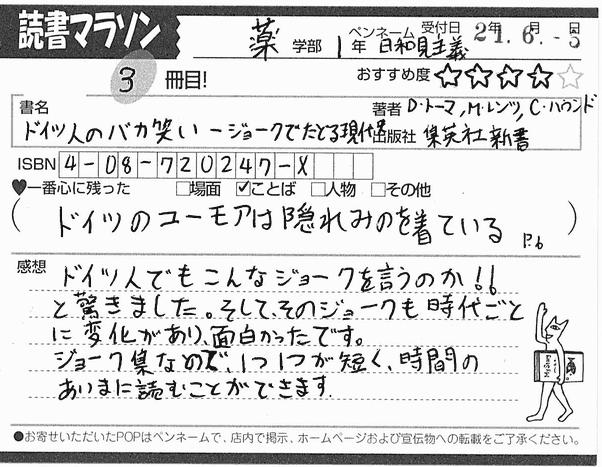 読書マラソン
薬 学部 1年 ペンネーム 日和見主義 受付日 21年6月-5日
3 冊目!
おすすめ度 ★★★★☆
書名 ドイツ人のバカ笑い－ジョークでたどる現代史
著者 D・トーマ, M・レンツ, C・ハウランド
出版社 集英社新書
ISBN 4-08-720247-X
♥一番心に残った □場面 ☑ことば □人物 □その他
( ドイツのユーモアは隠れみのを着ている P.6 )
感想
ドイツ人でもこんなジョークを言うのか!!
と驚きました。そして、そのジョークも時代ごと
に変化があり、面白かったです。
ジョーク集なので、1つ1つが短く、時間の
あいまに読むことができます.
●お寄せいただいたPOPはペンネームで、店内で掲示、ホームページおよび宣伝物への転載をご了承ください。